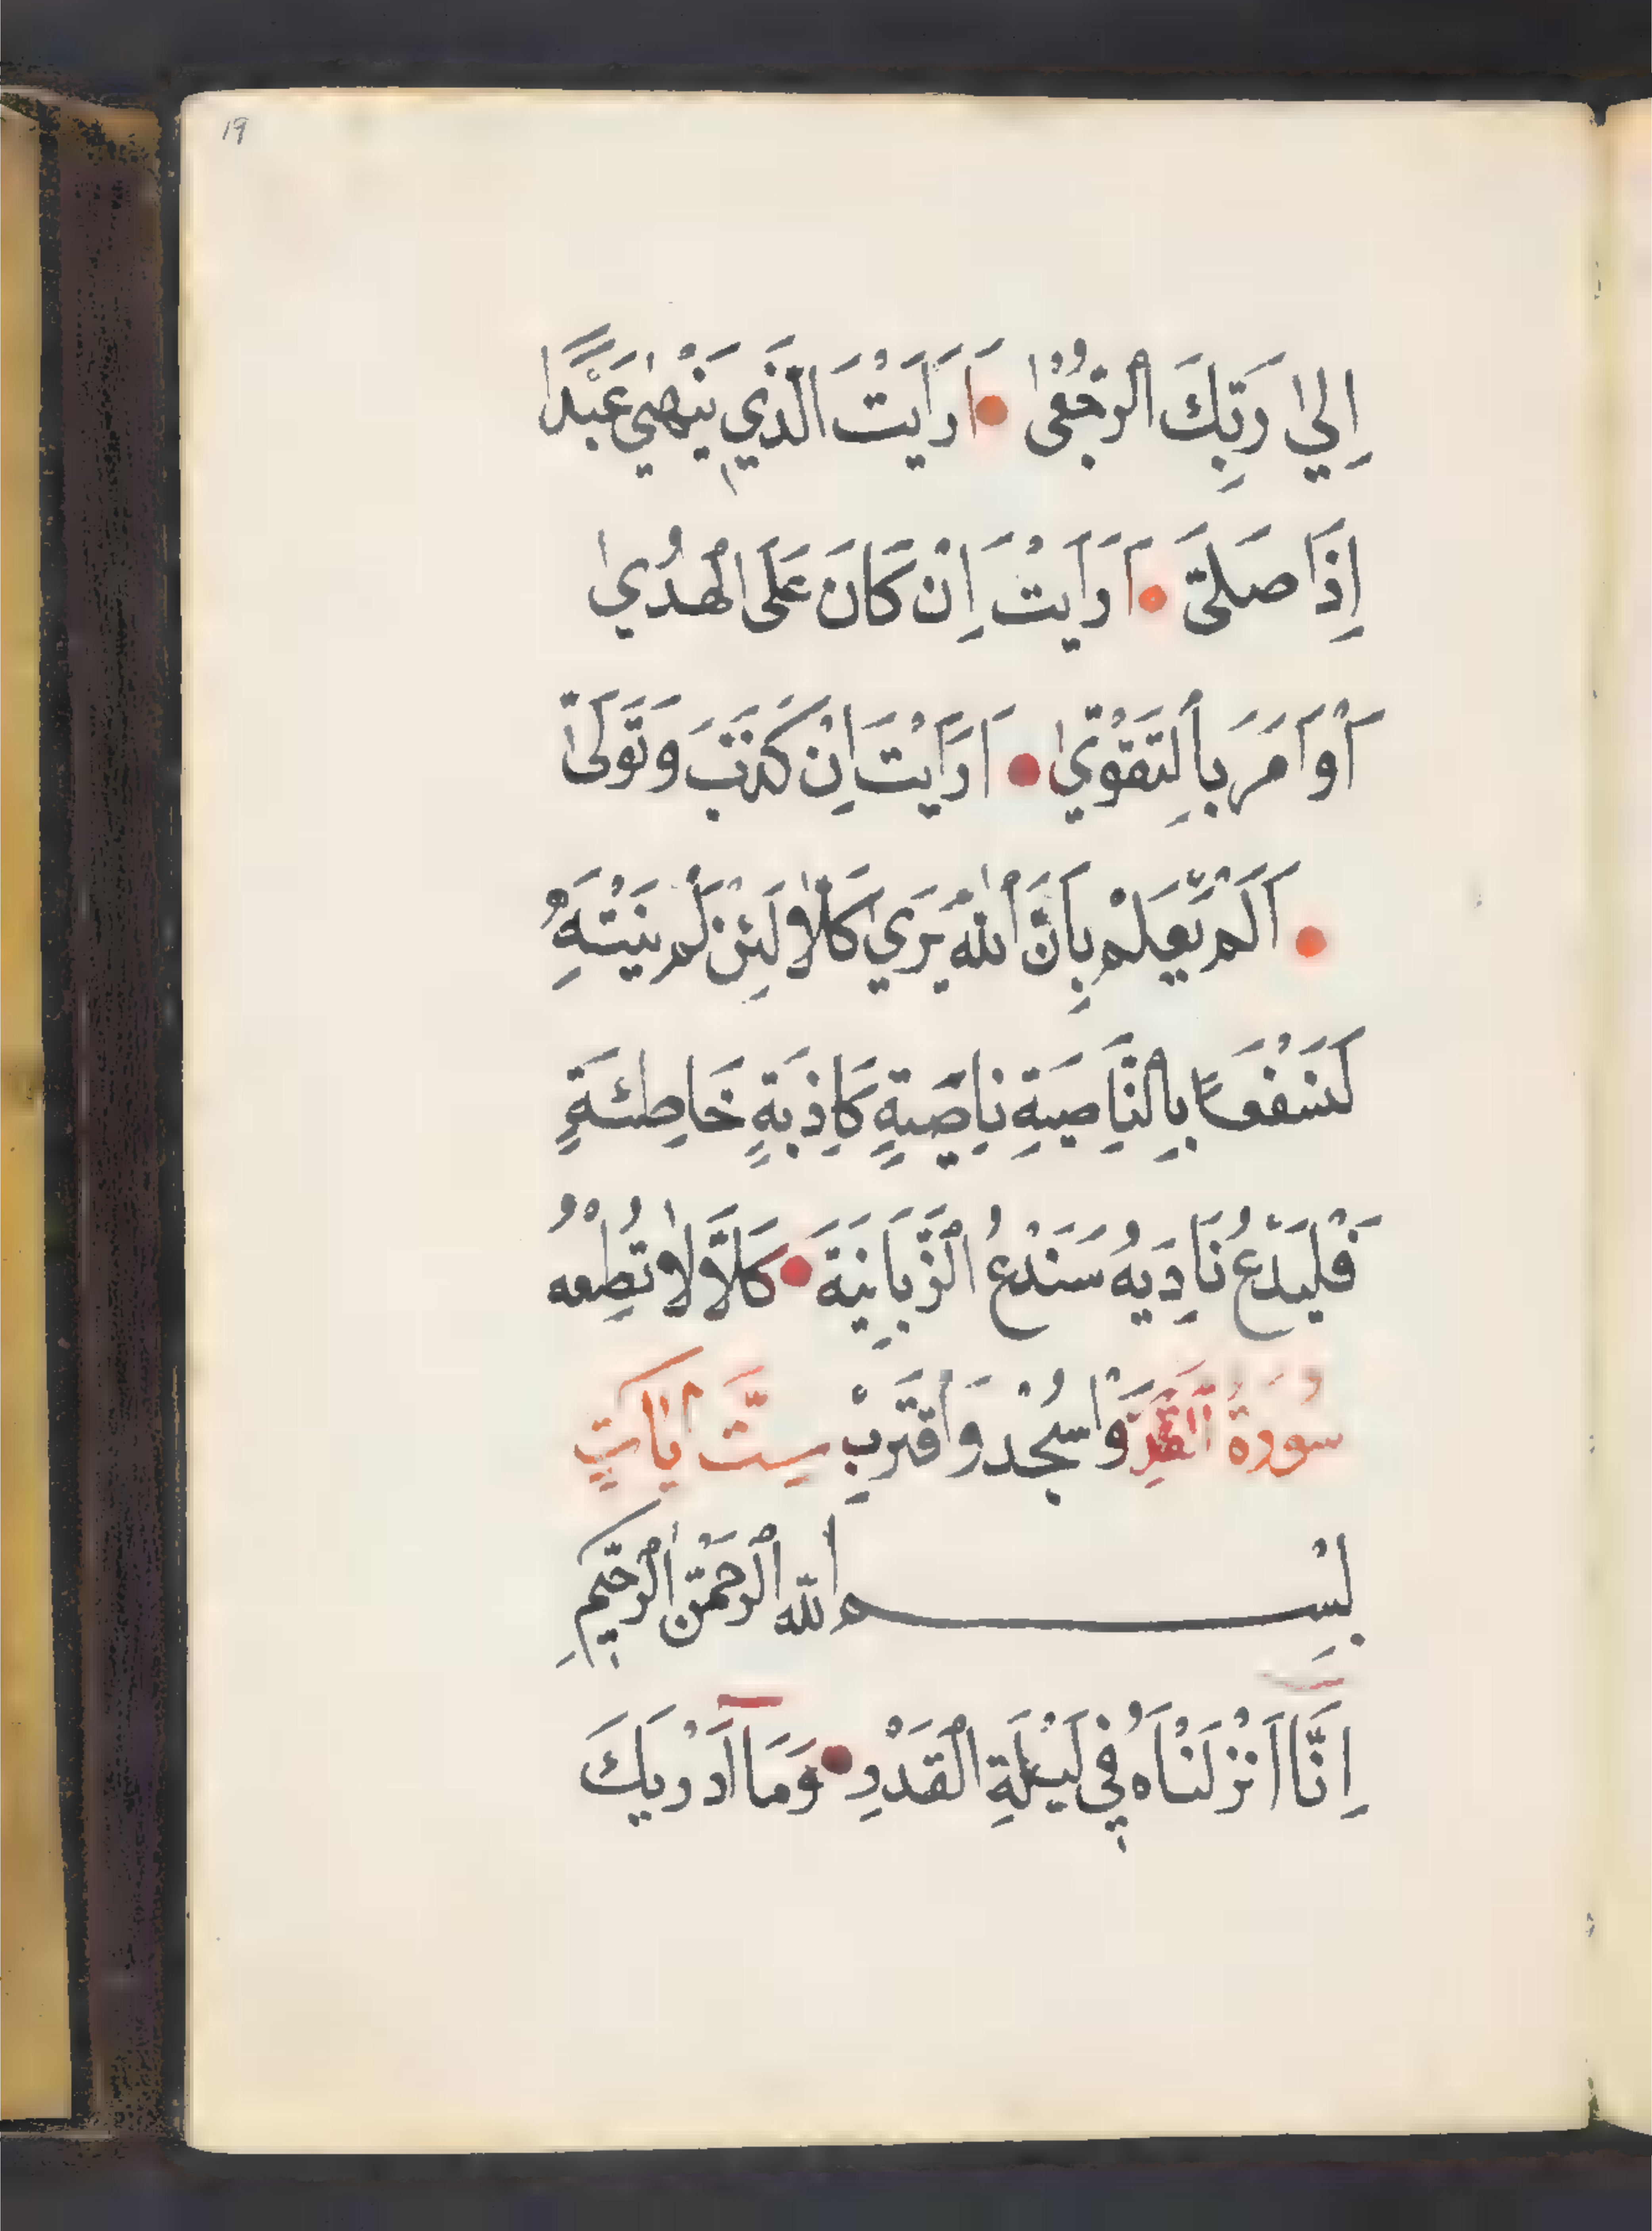 19
اِلىٰ رَبِّكَ الرُّجْعىٰ اَرَاَيْتَ الَّذِي يَنْهىٰ عَبْدًا
اِذَا صَلّىَ اَرَاَيْتَ اِنْ كَانَ عَلَى الْهُدىٰ
اَوْ اَمَرَ بِالتَّقْوىٰ اَرَاَيْتَ اِنْ كَذَّبَ وَتَوَلىّٰ
اَلَمْ يَعْلَمْ بِاَنَّ اللّٰهَ يَرَىٰ كَلَّا لَئِنْ لَمْ يَنْتَهِ
لَنَسْفَعًا بِالنَّاصِيَةِ نَاصِيَةٍ كَاذِبَةٍ خَاطِئَةٍ
فَلْيَدْعُ نَادِيَهُ سَنَدْعُ الزَّبَانِيَةَ كَلَّا لَا تُطِعْهُ
سُورَةُ الْقَدْرِ وَاسْجُدْ وَاقْتَرِبْ سِتُّ اٰيَاتٍ
بِسْمِ اللّٰهِ الرَّحْمٰنِ الرَّحِيمِ
اِنَّا اَنْزَلْنَاهُ فِي لَيْلَةِ الْقَدْرِ وَمَا اَدْرٰيكَ